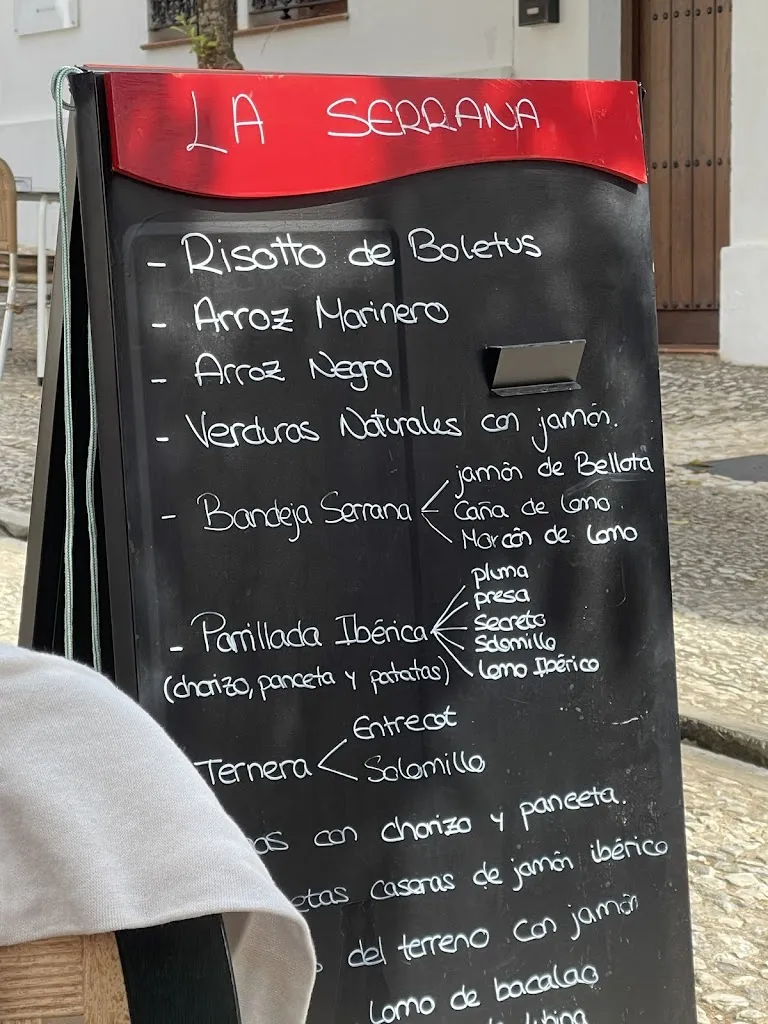 LA SERRANA
- Risotto de Boletus
- Arroz Marinero
- Arroz Negro
- Verduras Naturales con jamón.
- Bandeja Serrana
jamón de Bellota
Caña de lomo
Morcón de lomo
- Parrillada Ibérica
(chorizo, panceta y patatas)
pluma
presa
Secreto
Solomillo
Lomo Ibérico
Ternera
Entrecot
Solomillo
con chorizo y panceta.
etas caseras de jamón ibérico
del terreno con jamón
Lomo de bacalao
lubina